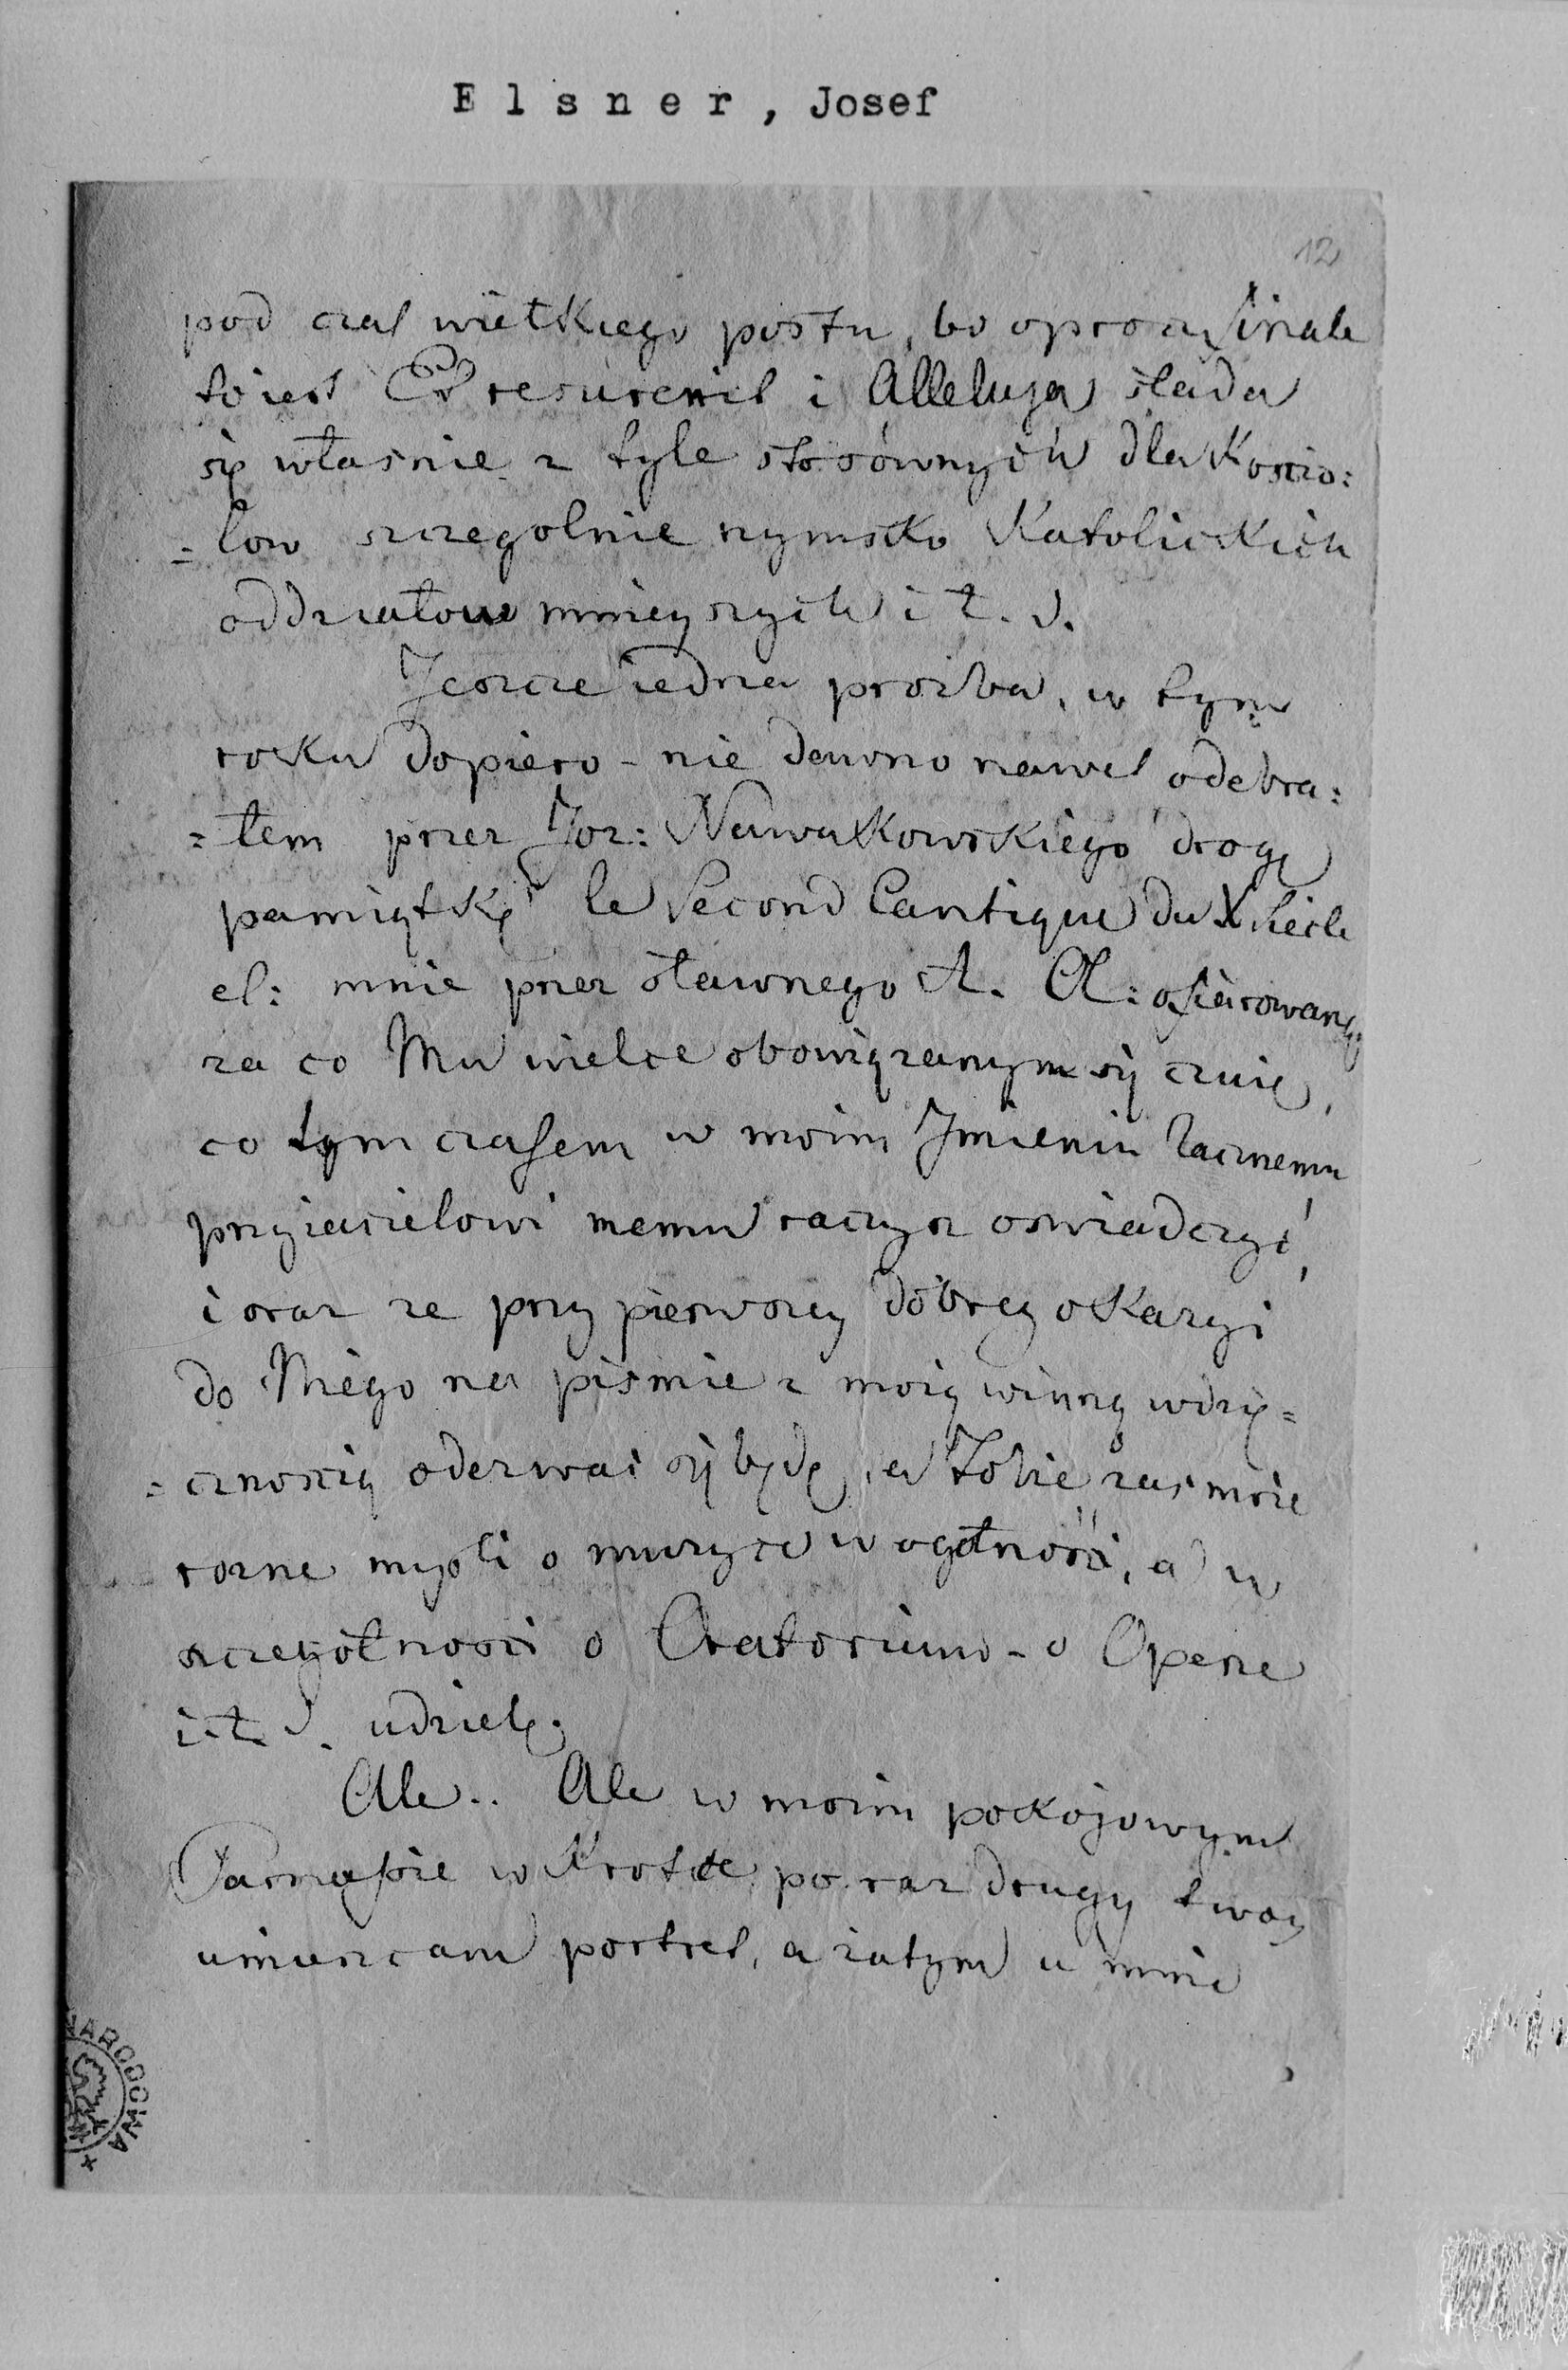 Elsner, Josef
12
pod czas wielkiego postu, bo oprocz finale
to iest Et resurexit i Alleluja składa
się własnie z tyle stosównych dla Koscio:
=low szczegolnie rzymsko Katolickich
oddziałow mnieyszych i t. d.
Jeszcze iedna prozba, w tym
roku dopiero - nie dawno nawet odebra:
=łem przez Joz: Nawakowskiego drogę
pamiątkę le Second Cantique du X Siecle
el: mnie przez sławnego A. Cl: ofiarowaną
za co Mu wielce obowiązanym się czuię,
co tym czasem w moim Jmieniu Zacnemu
przyiacielowi memu raczysz oswiadczyć,
i oraz ze przy pierwszey dobrey okazyi
do Niego na pismie z moią winną wdzię=
=cznoscią oderwać się będę, a Tobie zas moie
rozne mysli o muzyce w ogólności, a w
szczególnosci o Oratorium - o Operze
i t. d. udzielę.
Ale.. Ale w moim pokojowym
Parnassie w Krotce po raz drugy twoy
umieszcam portret, a zatym u mnie
NARODOWA